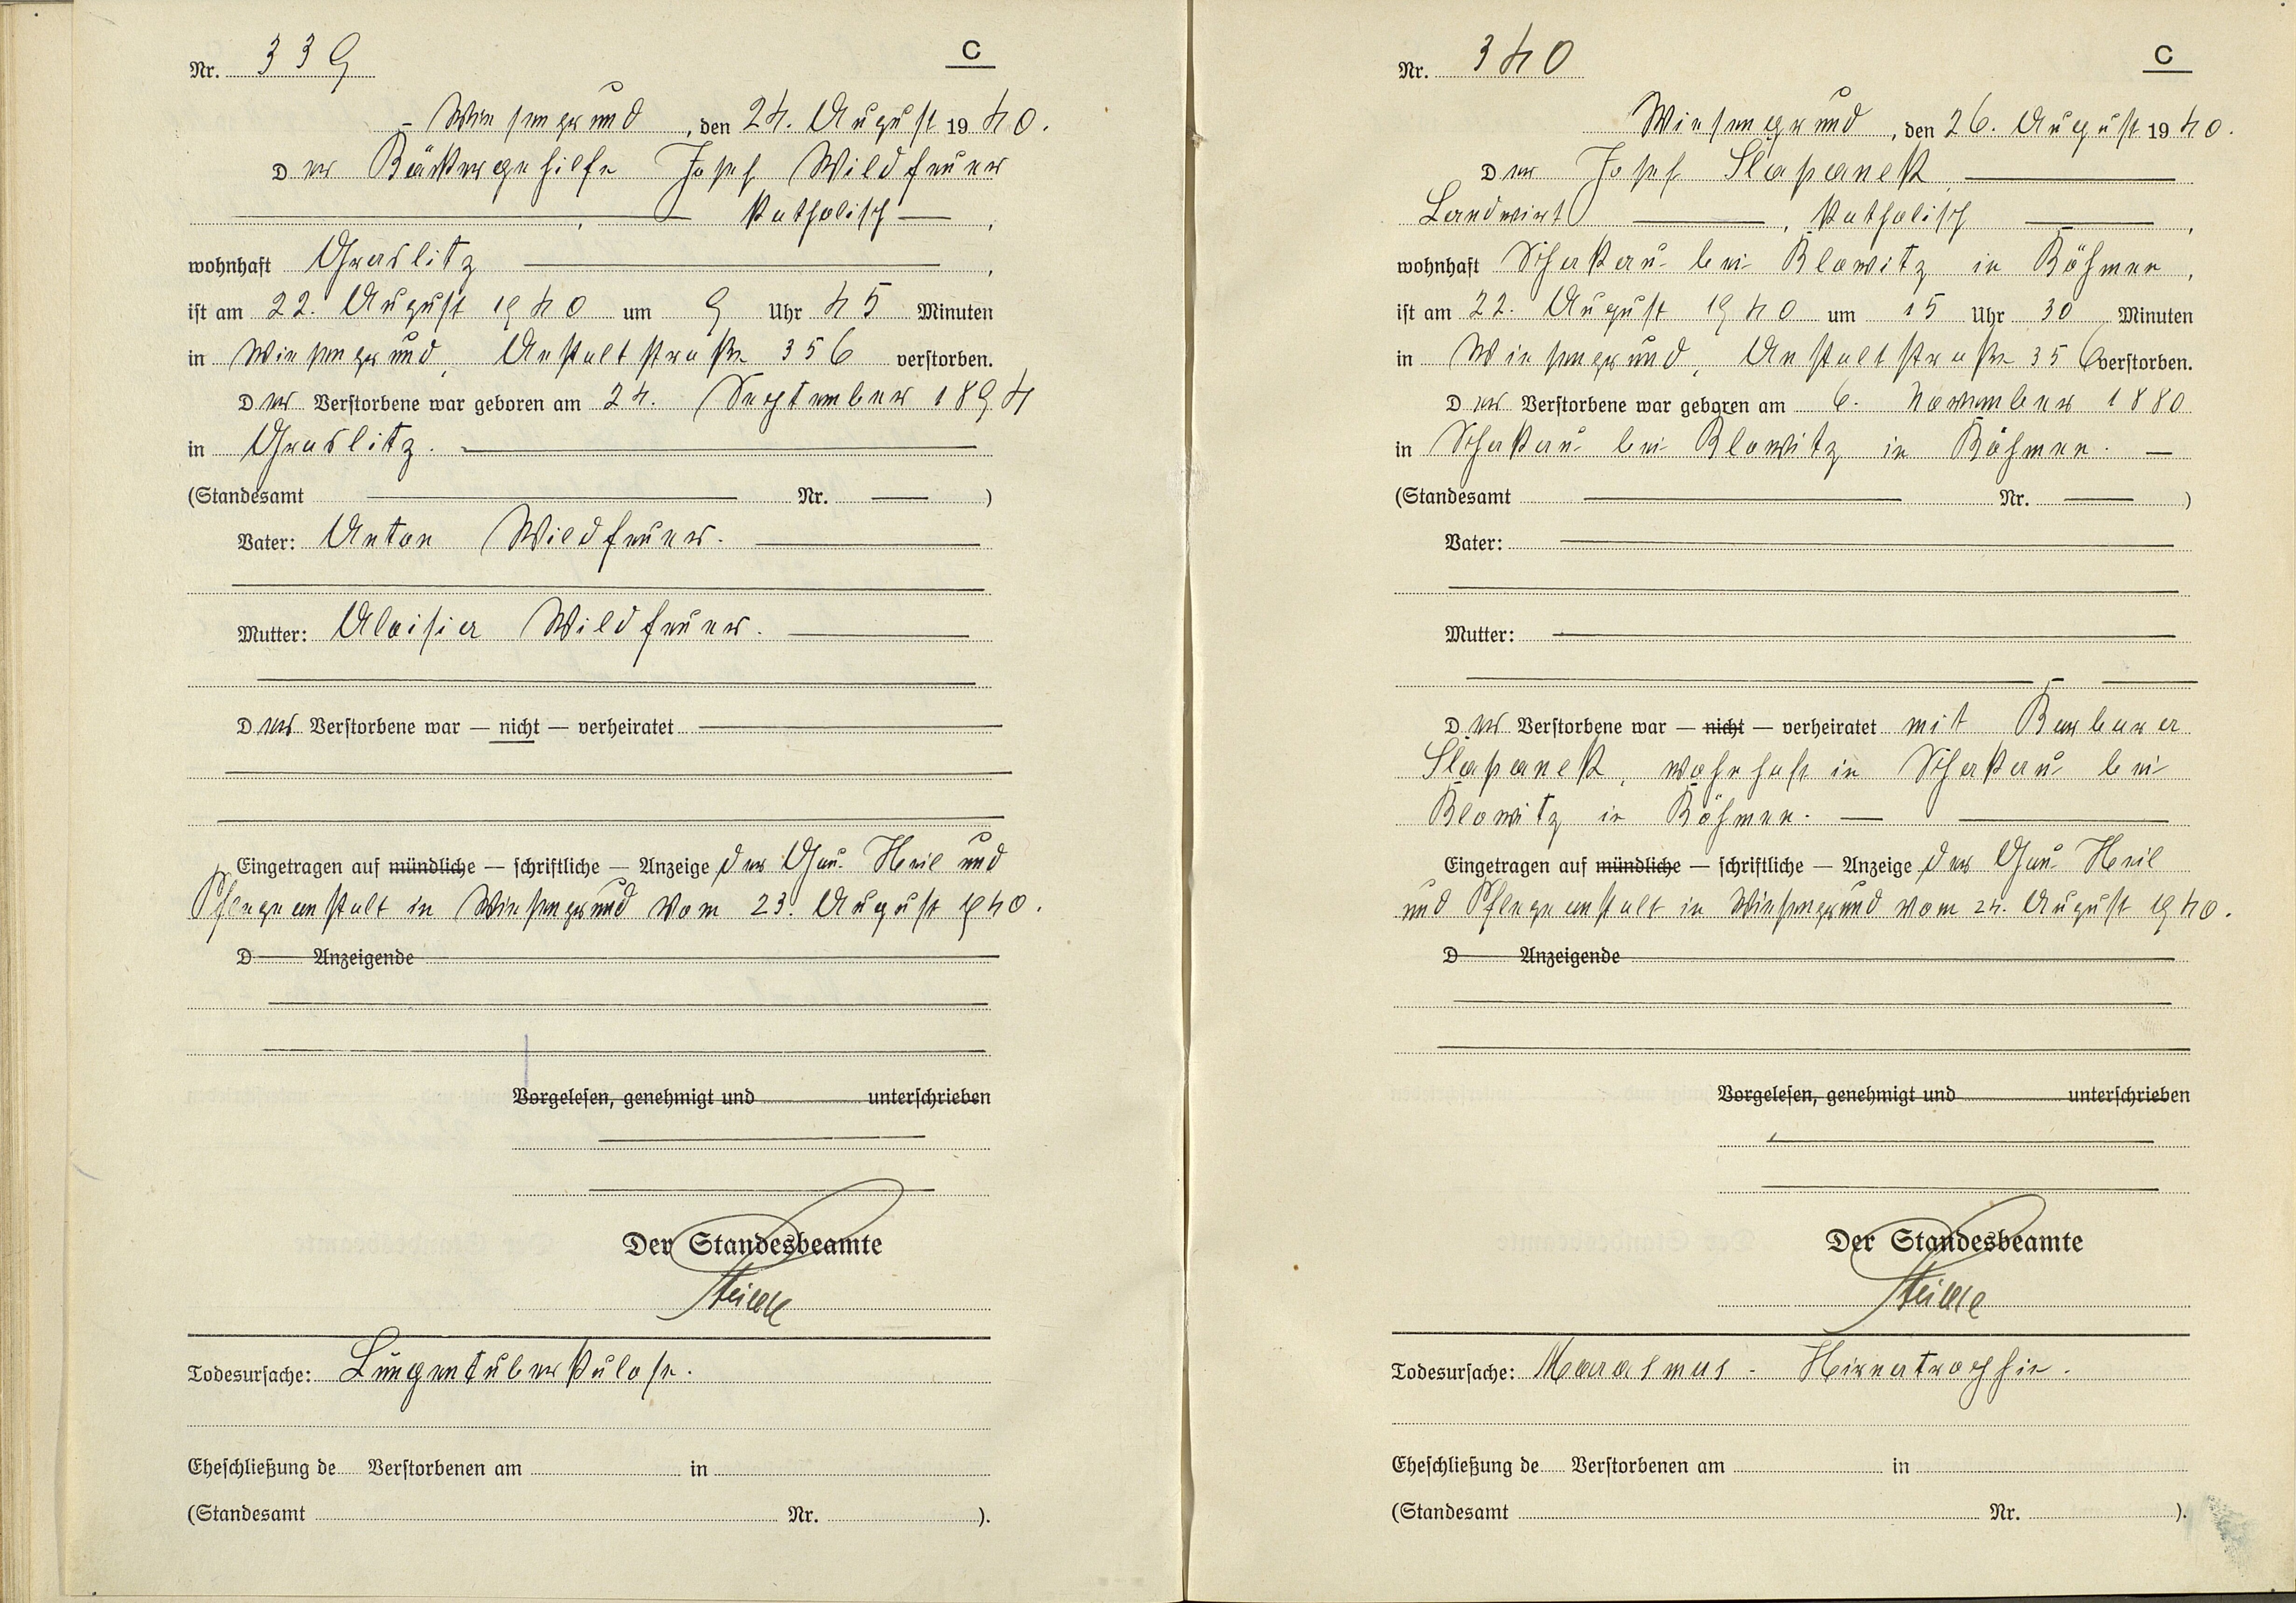 Nr. 339
C
Wiesengrund, den 24. August 1940.
Der Bäckergehilfe Josef Wildfeuer
, katholisch,
wohnhaft Graslitz,
ist am 22. August 1940 um 9 Uhr 45 Minuten
in Wiesengrund, Anstaltstraße 356 verstorben.
Der Verstorbene war geboren am 24. September 1894
in Graslitz.
(Standesamt Nr. )
Vater: Anton Wildfeuer.
Mutter: Aloisia Wildfeuer.
Der Verstorbene war — nicht — verheiratet
Eingetragen auf mündliche — schriftliche — Anzeige der Gau-Heil und
Pflegeanstalt in Wiesengrund vom 23. August 1940.
D Anzeigende
Vorgelesen, genehmigt und unterschrieben
Der Standesbeamte
Todesursache: Lungentuberkulose.
Eheschließung de Verstorbenen am in
(Standesamt Nr. ).
Nr. 340
C
Wiesengrund, den 26. August 1940.
Der Josef Slapanek
Landwirt, katholisch,
wohnhaft Schakau bei Blowitz in Böhmen,
ist am 22. August 1940 um 15 Uhr 30 Minuten
in Wiesengrund, Anstaltstraße 356 verstorben.
Der Verstorbene war geboren am 6. November 1880
in Schakau bei Blowitz in Böhmen.
(Standesamt Nr. )
Vater:
Mutter:
Der Verstorbene war — nicht — verheiratet mit Barbara
Slapanek, wohnhaft in Schakau bei
Blowitz in Böhmen.
Eingetragen auf mündliche — schriftliche — Anzeige der Gau-Heil
und Pflegeanstalt in Wiesengrund vom 24. August 1940.
D Anzeigende
Vorgelesen, genehmigt und unterschrieben
Der Standesbeamte
Todesursache: Marasmus - Hirnatrophie.
Eheschließung de Verstorbenen am in
(Standesamt Nr. ).